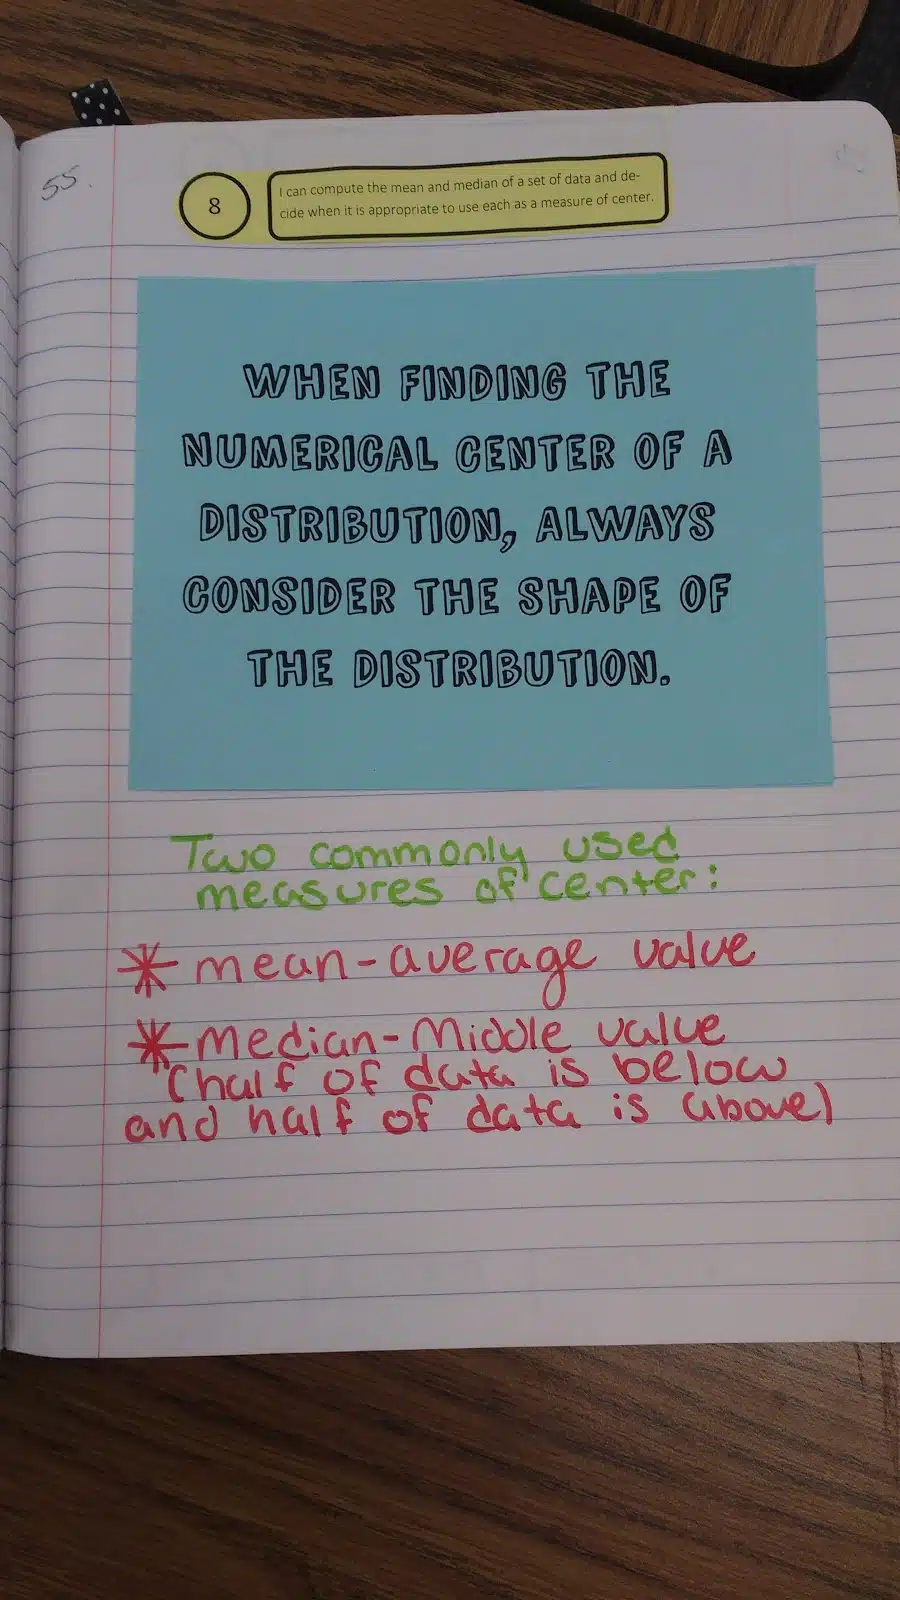 55.
8
I can compute the mean and median of a set of data and de-
cide when it is appropriate to use each as a measure of center.
WHEN FINDING THE
NUMERICAL CENTER OF A
DISTRIBUTION, ALWAYS
CONSIDER THE SHAPE OF
THE DISTRIBUTION.
Two commonly used
measures of center:
* mean-average value
* median-Middle value
(half of data is below
and half of data is above)